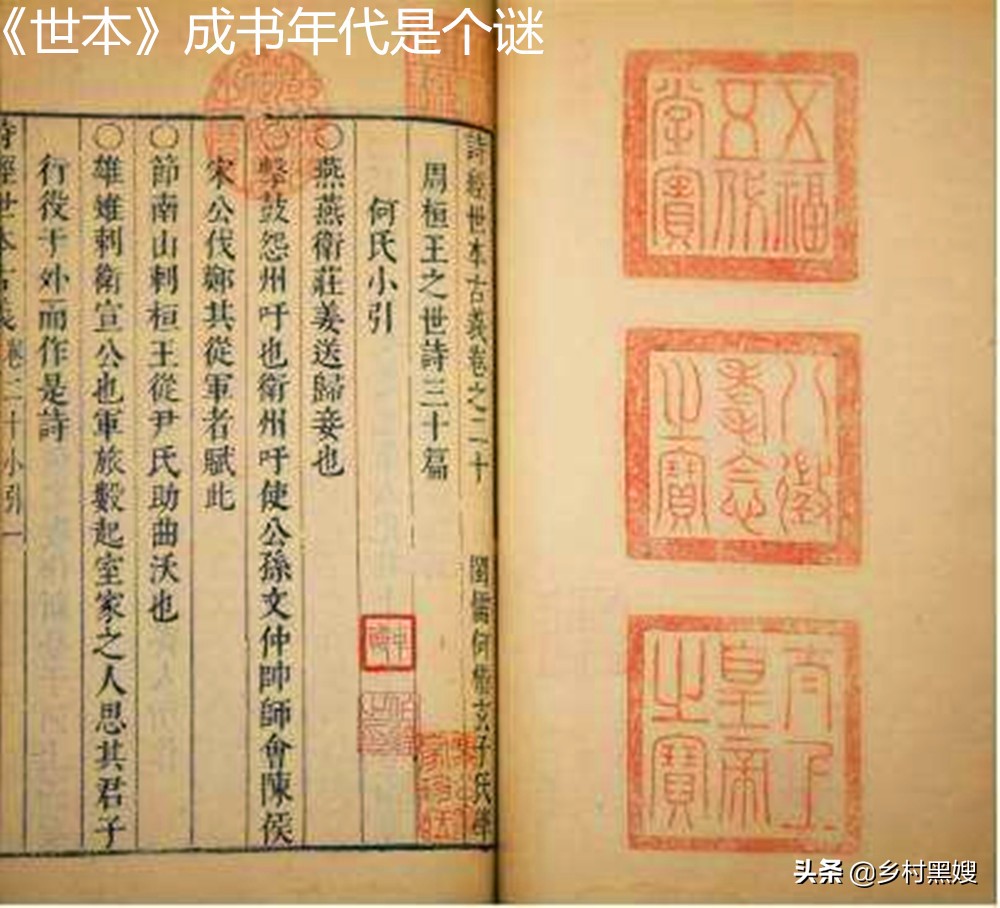 《世本》成书年代是个谜
五福
五代
堂寶
八徵
耄念
之寶
太上
皇帝
之寶
詩經世本古義卷之二十 閩儒何楷玄子氏學
周桓王之世詩三十篇
何氏小引
○燕燕衛莊姜送歸妾也
○擊鼓怨州吁也衛州吁使公孫文仲帥師會陳侯
宋公伐鄭其從軍者賦此
○節南山刺桓王從尹氏助曲沃也
○雄雉刺衛宣公也軍旅數起室家之人思其君子
行役于外而作是詩
詩經世本古義 卷二十小引 一
头条 @乡村黑嫂